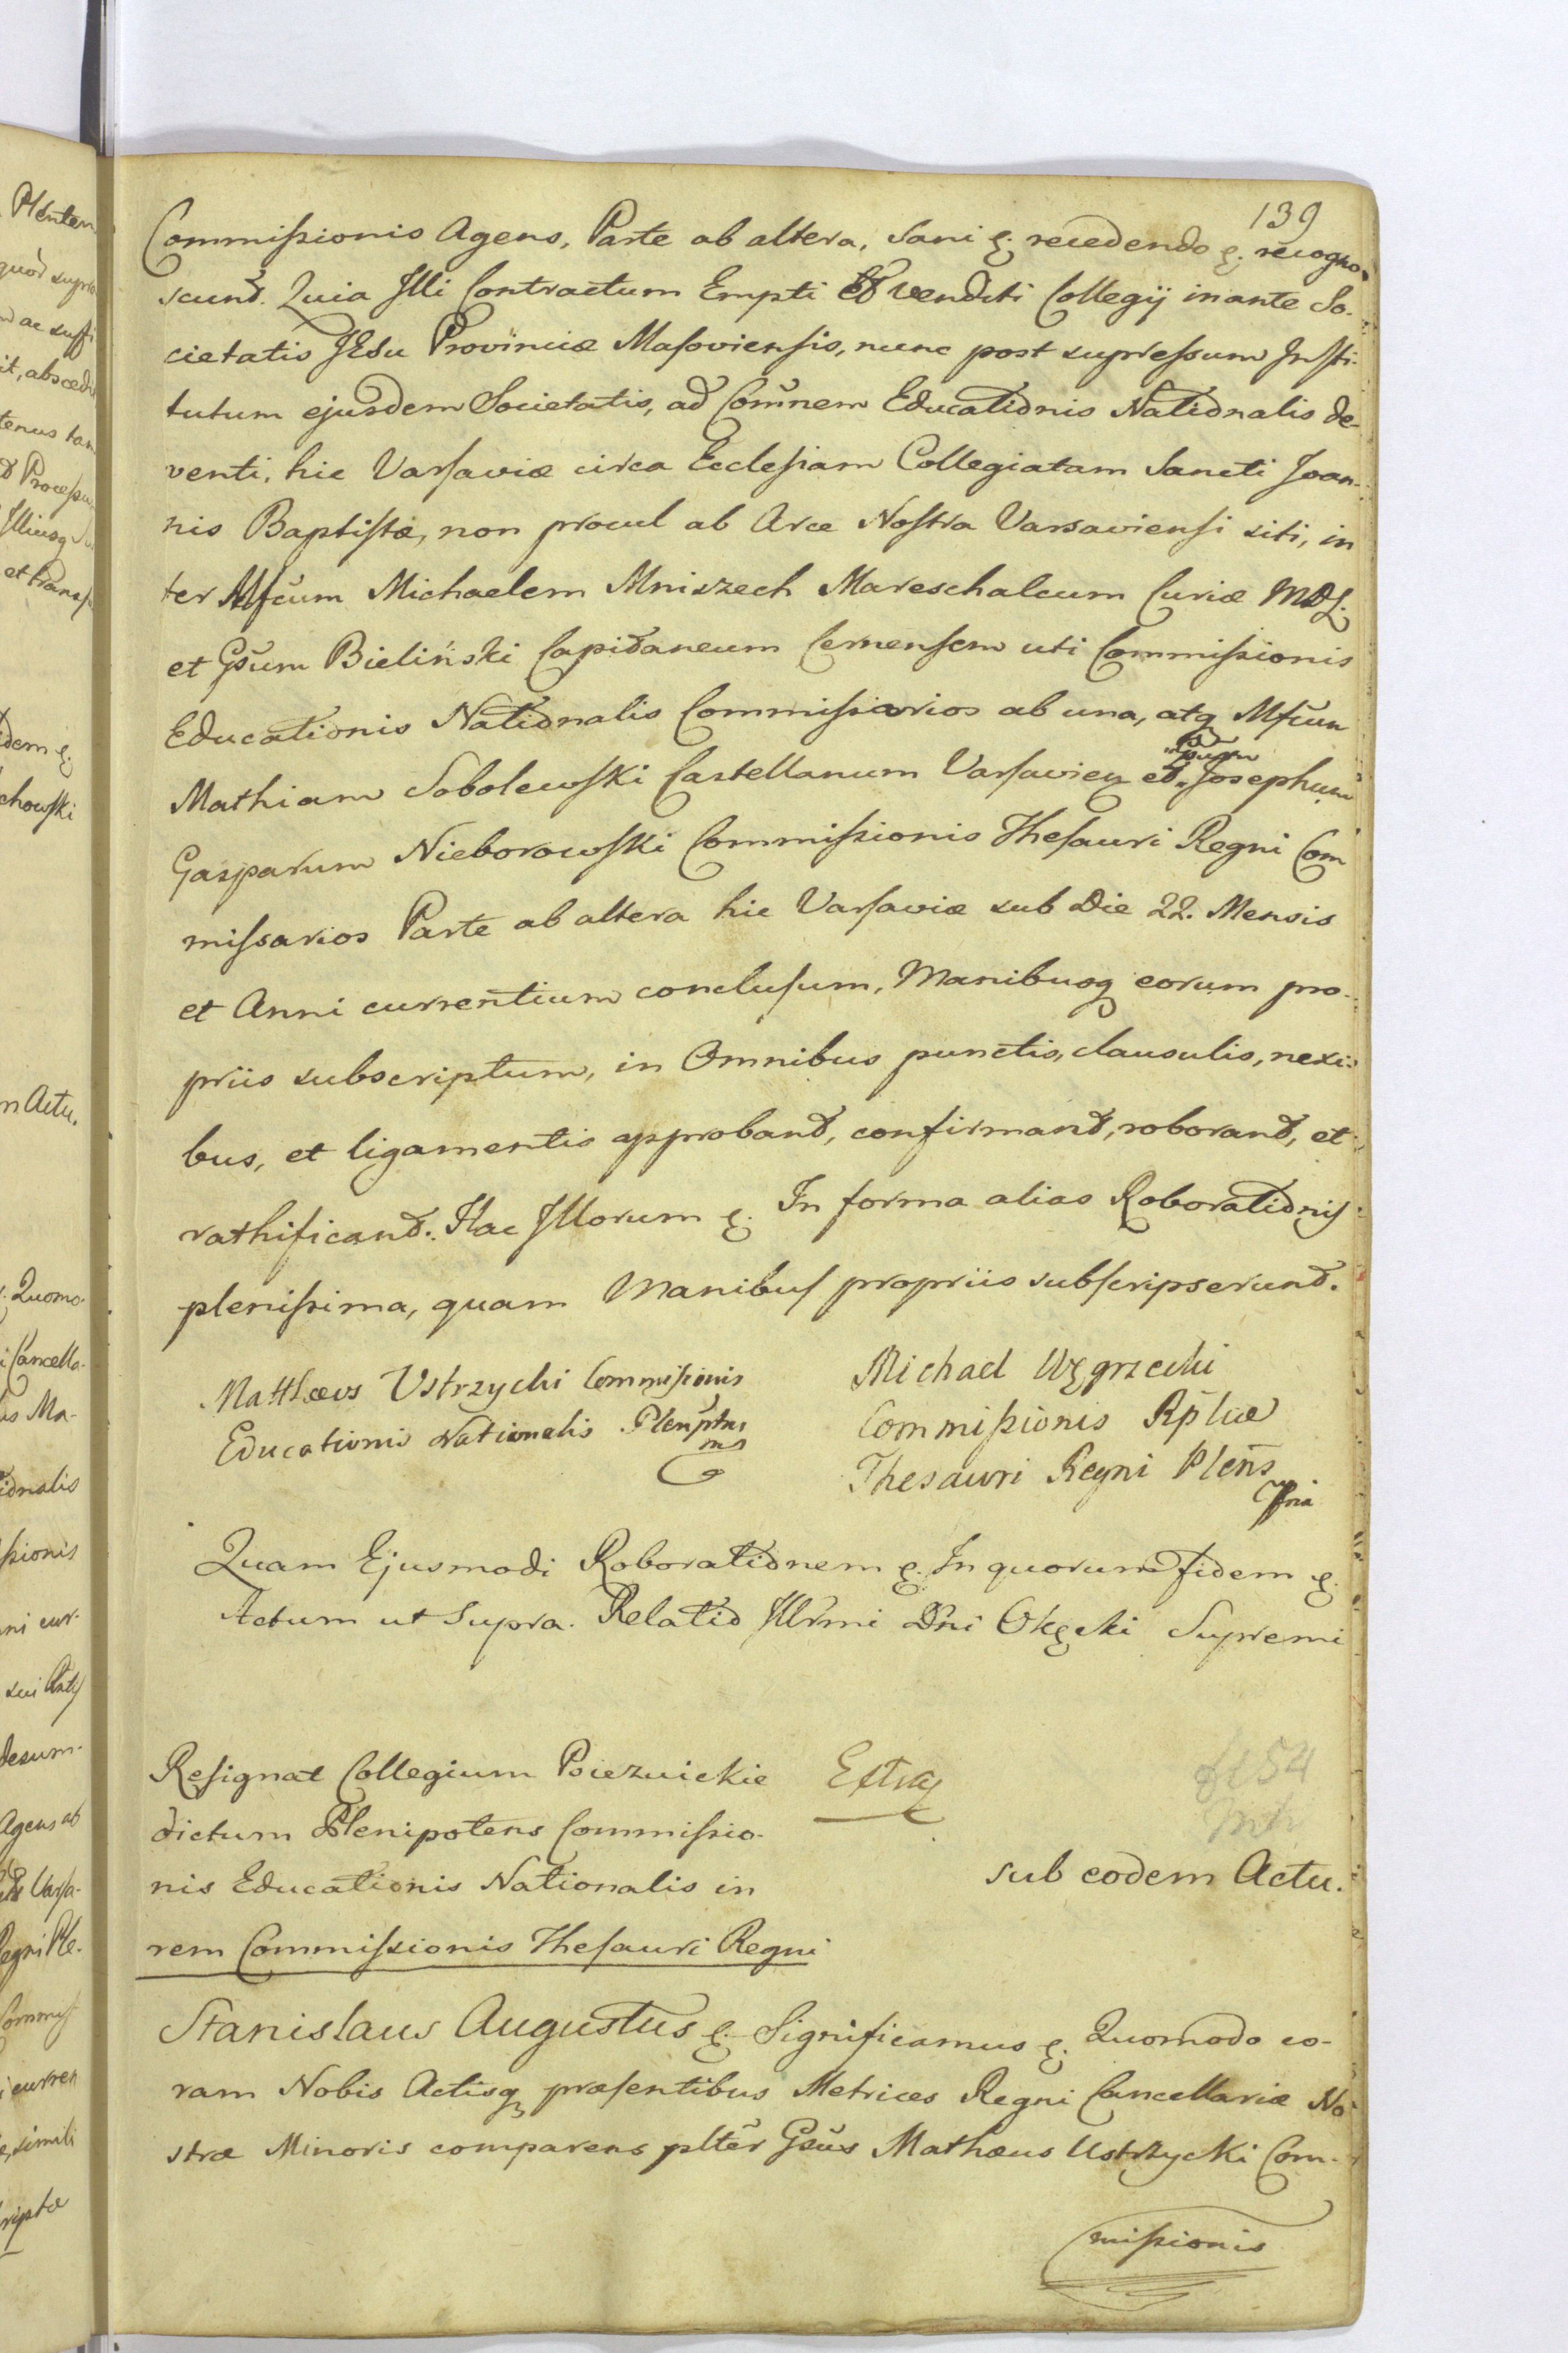 139
Commissionis Agens, Parte ab altera, sani &. recedendo &. recogno-
scund. Quia Illi Contractum Empti et venditi Collegij inante So-
cietatis JEsu Provinciæ Masoviensis, nunc post supressum Insti-
tutum ejusdem Societatis, ad Com̃nem Educationis Nationalis de-
venti, hic Varsaviæ circa Ecclesiam Collegiatam Sancti Joan-
nis Baptistæ, non procul ab Arce Nostra Varsaviensi siti, in
ter Mfcum Michaelem Mniszech Mareschalcum Curiæ MDL.
et Gsum Bieliński Capitaneum Cernensem uti Commissionis
Educationis Nationalis Commissiarios ab una, atq Mfcum
Mathiam Sobolewski Castellanum Varsavien et Gsum Josephum
Gasparum Nieborowski Commissionis Thesauri Regni Com
missarios Parte ab altera hic Varsaviæ sub Die 22. Mensis
et Anni currentium conclusum, Manibusq eorum pro-
priis subscriptum, in Omnibus punctis, clausulis, nexi-
bus, et ligamentis approband, confirmand, roborand, et
rathificand. Hac Illorum &. In forma alias Roborationis
plenissima, quam Manibus propriis subscripserund.
Matthæus Ustrzycki Commissionis
Educationis Nationalis Plenptns
mp
Michael Węgrzecki
Commissionis Rplicæ
Thesauri Regni Plens
Quam Ejusmodi Roborationem &. In quorum Fidem &.
Actum ut Supra. Relatio Illrmi Dni Okęcki Supremi
Resignat Collegium Poiezuickie
dictum Plenipotens Commissio-
nis Educationis Nationalis in
rem Commissionis Thesauri Regni
sub eodem Actu.
Stanislaus Augustus &. Significamus &. Quomodo co-
ram Nobis Actisq præsentibus Metrices Regni Cancellariæ No
stræ Minoris comparens plter Gsus Mathæus Ustrzycki Com-
missionis